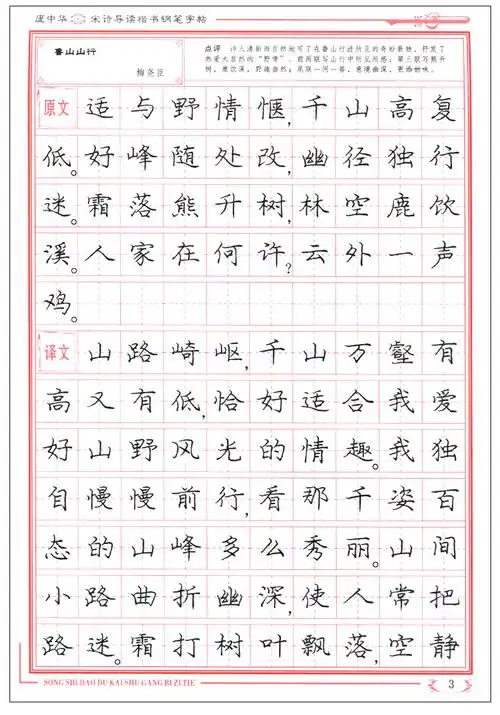 庞中华 宋诗导读楷书钢笔字帖
鲁山山行
梅尧臣
点评 诗人清新而自然地写了在鲁山行进所见的奇妙景致，抒发了
热爱大自然的“野情”。前两联写山行中所见所感；第三联写熊升
树，鹿饮溪，野趣盎然；尾联一问一答，意境幽深，更添韵味。
原文 适与野情惬，千山高复
低。好峰随处改，幽径独行
迷。霜落熊升树，林空鹿饮
溪。人家在何许？云外一声
鸡。
译文 山路崎岖，千山万壑有
高又有低，恰好适合我爱
好山野风光的情趣。我独
自慢慢前行，看那千姿百
态的山峰多么秀丽。山间
小路曲折幽深，使人常把
路迷。霜打树叶飘落，空静
SONG SHI DAO DU KAI SHU GANG BI ZI TIE
3